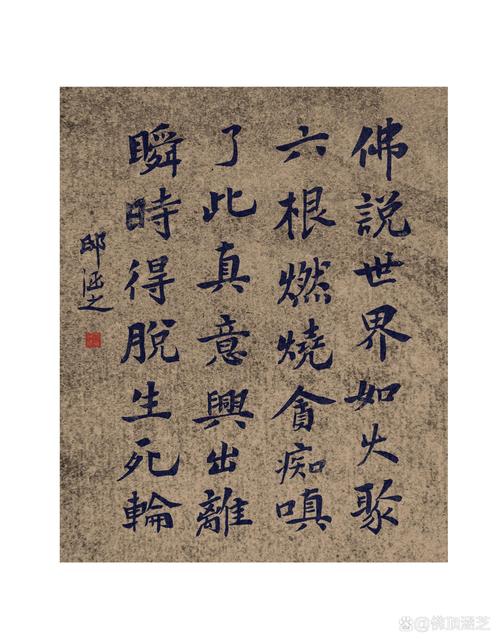 佛説世界如火聚
六根燃燒貪痴嗔
了此真意興出離
瞬時得脫生死輪
邱涵之
@佛頂涵芝